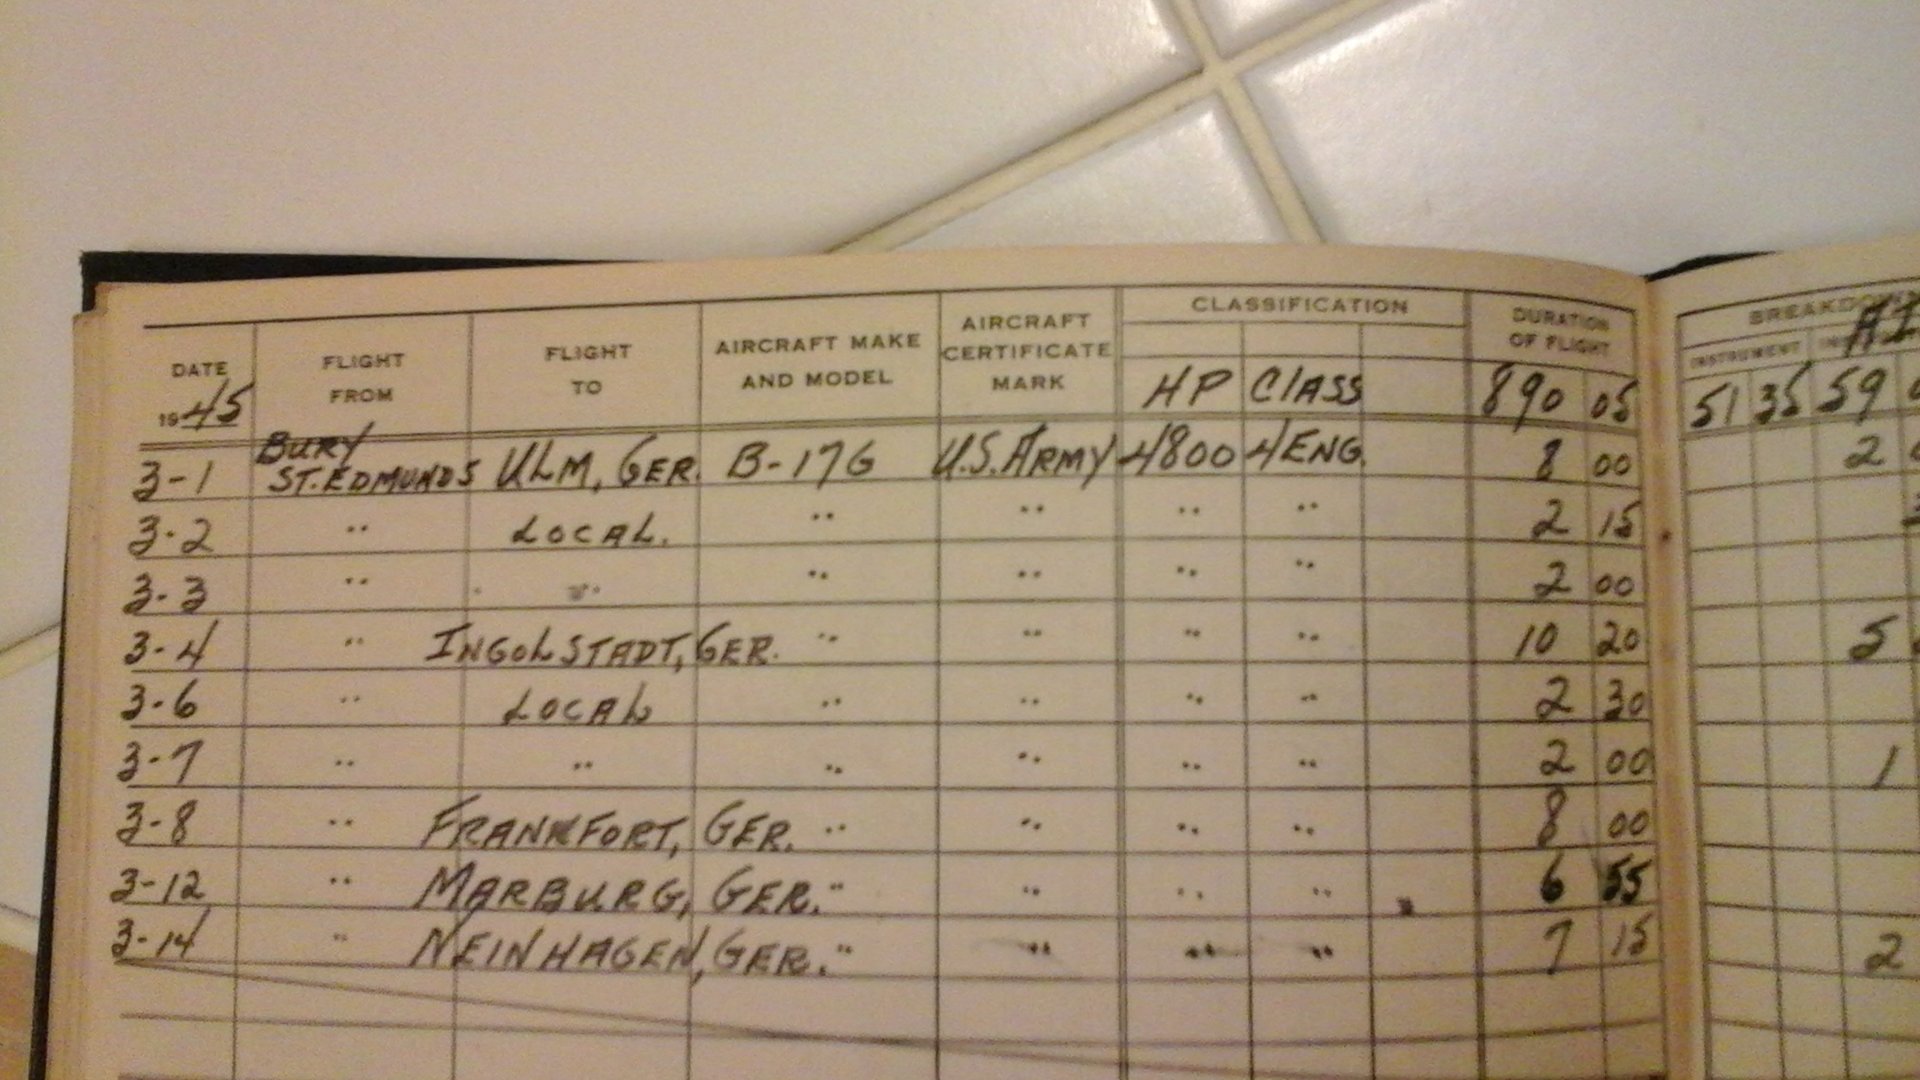 CLASSIFICATION
DATE 1945 FLIGHT FROM FLIGHT TO AIRCRAFT MAKE AND MODEL AIRCRAFT CERTIFICATE MARK HP CLASS DURATION OF FLIGHT 890 05 INSTRUMENT 51 35 59
3-1 BURY ST. EDMUNDS ULM, GER. B-17G U.S. ARMY 4800 4 ENG. 8 00 2
3-2 " LOCAL. " " " " 2 15
3-3 " " " " " " 2 00
3-4 " INGOLSTADT, GER. " " " " 10 20 5
3-6 " LOCAL " " " " 2 30
3-7 " " " " " " 2 00 1
3-8 " FRANKFORT, GER. " " " " 8 00
3-12 " MARBURG, GER. " " " " 6 55
3-14 " NEINHAGEN, GER. " " " " 7 15 2